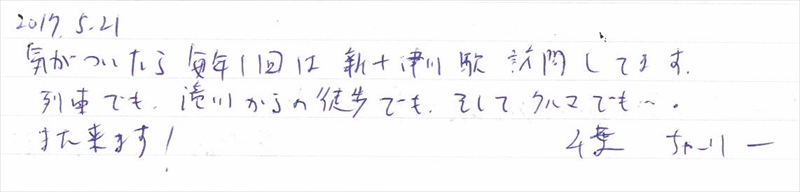 2017. 5.21
気がついたら毎年1回は新十津川駅訪問してます。
列車でも、滝川からの徒歩でも、そしてクルマでも…。
また来ます! 千葉 ちゃーりー